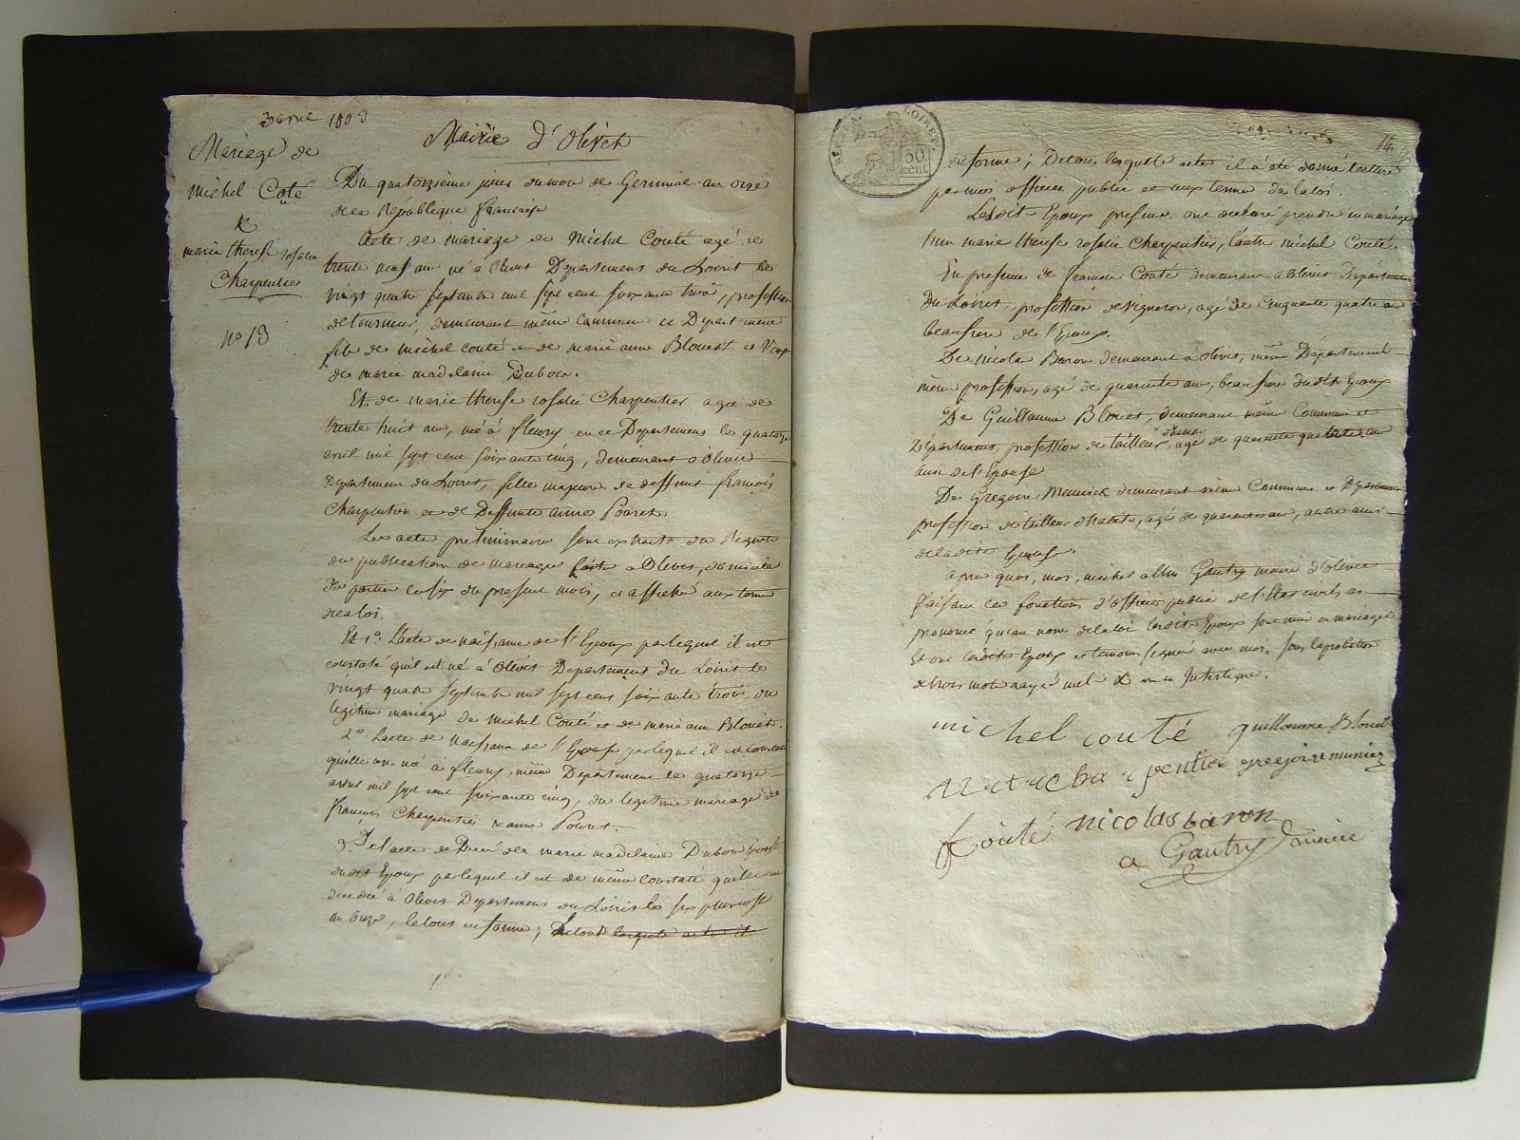 Mairie d'Olivet
Mariage de
Michel Couté
&
marie therese rosalie
Charpentier
n° 13
Du quatorzième jour du mois de Germinal an onze
de la République française
Acte de mariage de Michel Couté agé de
trente neuf ans né à Olivet Département du Loiret le
vingt quatre septembre mil sept cent soixante trois, profession
de tourneur, demeurant même commune et Département
fils de michel couté et de marie anne Blouet et Veuf
de marie madelaine Dubois.
Et de marie therese rosalie Charpentier agée de
trente huit ans, née à fleury en ce Département le quatorze
avril mil sept cent soixante cinq, demeurant à Olivet
département du Loiret, fille majeure de deffunt françois
Charpentier et de Deffunte anne Poiret.
Les actes preliminaires sont extraits du Registre
de publication de mariages faite à Olivet, domicile
des parties le six du présent mois, et affiché aux termes
de la loi.
Et 1°. L'acte de naissance de l'Epoux par lequel il est
constaté qu'il est né à Olivet Département du Loiret le
vingt quatre septembre mil sept cent soixante trois du
legitime mariage de Michel Couté et de marie anne Blouet.
2° L'acte de naissance de l'Epouse par lequel il est constaté
qu'elle est née à fleury même Département le quatorze
avril mil sept cent soixante cinq, du legitime mariage de
françois Charpentier & anne Poiret.
3° de l'acte de Décès de la marie madelaine Dubois Epouse
dudit Epoux par lequel il est de même constaté qu'elle est
décédée à Olivet Département du Loiret le six pluviose
an onze, le tout en forme; De tous lesquels actes il
14.
50
cent
en forme; De tous lesquels actes il a été donné lecture
par moi officier public et aux termes de la loi.
Lesdits Epoux presens ont declaré prendre en mariage
l'un marie therese rosalie Charpentier, l'autre michel Couté.
En presence de Couté demeurant à Olivet Département
du Loiret, profession de vigneron, agé de cinquante quatre ans
beaufrere de l'Epoux.
De nicolas Baron demeurant à olivet, même Département
même profession, agé de quarante ans, beaufrere dudit Epoux
De Guillaume Blouet, demeurant même Commune et
Département, profession de tailleur agé de quarante quatre ans
ami de l'Epouse
De Gregoire Meunier demeurant même Commune et Département
profession de tailleur d'habits, agé de quarante ans, autre ami
de ladite Epouse.
Après quoi, moi, michel albin Gautry maire d'Olivet
faisant les fonctions d'officier public de l'état civil ai
prononcé qu'au nom de la loi lesdits Epoux sont unis en mariage
Et ont lesdits Epoux et temoins signé avec moi. sous l'aprobation
de trois mots rayés nuls & un en Interligne.
michel couté guillaume Blouet
gregoire munier
Couté nicolas baron
a Gautry maire